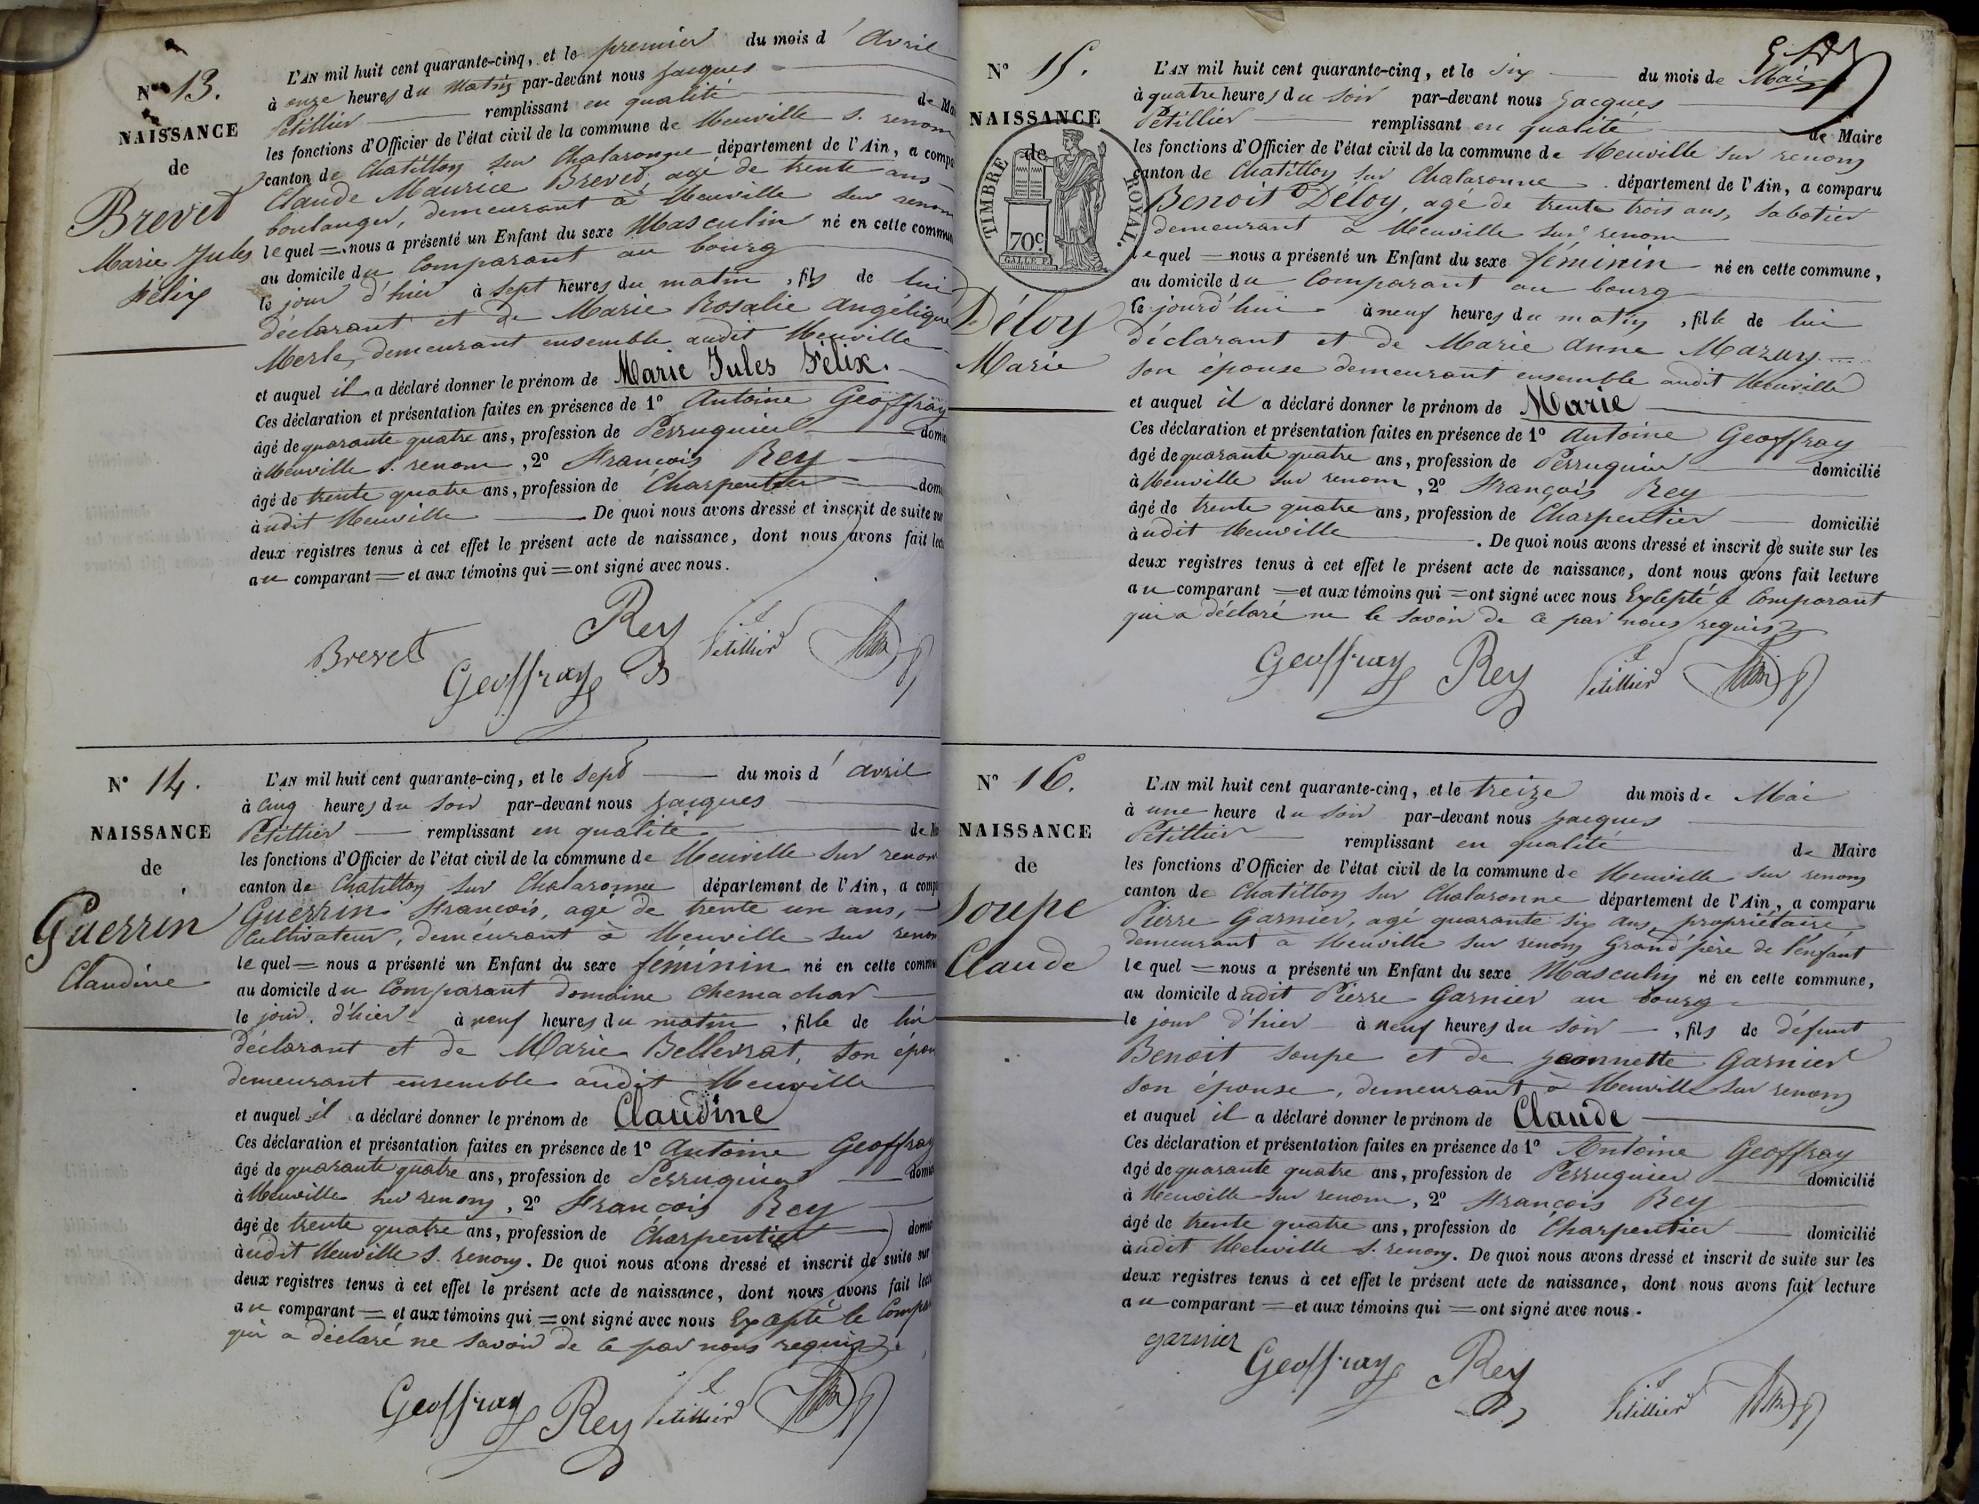 N° 13.
NAISSANCE
de
Brevet
Marie Jules
Félix
L'AN mil huit cent quarante-cinq, et le premier du mois d' avril
à onze heures du matin par-devant nous Jacques
Pétillier remplissant en qualité de Ma
les fonctions d'Officier de l'état civil de la commune de Neuville s. renom
canton de Chatillon sur Chalaronne département de l'Ain, a compa
Claude Maurice Brevet, agé de trente ans
boulanger, demeurant à Neuville sur renom
lequel = nous a présenté un Enfant du sexe Masculin né en cette commun
au domicile du Comparant au bourg
le jour d'hier à sept heures du matin, fils de lui
déclarant et de Marie Rosalie Angélique
Merle, demeurant ensemble audit Neuville
et auquel il a déclaré donner le prénom de Marie Jules Félix.
Ces déclaration et présentation faites en présence de 1° Antoine Geoffray
âgé de quarante quatre ans, profession de Perruquier domic
à Neuville s. renom, 2° François Rey
âgé de trente quatre ans, profession de Charpentier dom
à udit Neuville. De quoi nous avons dressé et inscrit de suite sur
deux registres tenus à cet effet le présent acte de naissance, dont nous avons fait lect
au comparant = et aux témoins qui = ont signé avec nous.
Brevet Rey Geoffray Petillier
N° 14.
NAISSANCE
de
Guerrin
Claudine
L'AN mil huit cent quarante-cinq, et le sept du mois d' avril
à cinq heures du soir par-devant nous Jacques
Pétillier remplissant en qualité de Ma
les fonctions d'Officier de l'état civil de la commune de Neuville sur renom
canton de Chatillon sur Chalaronne département de l'Ain, a compa
Guerrin François, agé de trente un ans,
Cultivateur, demeurant à Neuville sur renom
lequel = nous a présenté un Enfant du sexe féminin né en cette commu
au domicile du Comparant domaine chemachar
le jour d'hier à neuf heures du matin, fille de lui
déclarant et de Marie Bellevrat, son épou
demeurant ensemble audit Neuville
et auquel il a déclaré donner le prénom de Claudine
Ces déclaration et présentation faites en présence de 1° Antoine Geoffray
âgé de quarante quatre ans, profession de Perruquier domic
à Neuville sur renom, 2° François Rey
âgé de trente quatre ans, profession de Charpentier domic
à udit Neuville s. renom. De quoi nous avons dressé et inscrit de suite sur
deux registres tenus à cet effet le présent acte de naissance, dont nous avons fait lect
au comparant = et aux témoins qui = ont signé avec nous Excepté le Compa
qui a déclaré ne savoir de ce par nous requis.
Geoffray Rey Petillier
N° 15.
NAISSANCE
de
TIMBRE ROYAL.
70c.
Déloy
Marie
L'AN mil huit cent quarante-cinq, et le six du mois de Mai
à quatre heures du soir par-devant nous Jacques
Pétillier remplissant en qualité de Maire
les fonctions d'Officier de l'état civil de la commune de Neuville sur renom
canton de Chatillon sur Chalaronne. département de l'Ain, a comparu
Benoit Déloy, agé de trente trois ans, Sabotier
demeurant à Neuville sur renom
lequel = nous a présenté un Enfant du sexe féminin né en cette commune,
au domicile du Comparant au bourg
le jourd'hui à neuf heures du matin, fille de lui
déclarant et de Marie Anne Mazuy
son épouse demeurant ensemble audit Neuville
et auquel il a déclaré donner le prénom de Marie
Ces déclaration et présentation faites en présence de 1° Antoine Geoffray
âgé de quarante quatre ans, profession de Perruquier domicilié
à Neuville sur renom, 2° François Rey
âgé de trente quatre ans, profession de Charpentier domicilié
à udit Neuville. De quoi nous avons dressé et inscrit de suite sur les
deux registres tenus à cet effet le présent acte de naissance, dont nous avons fait lecture
au comparant = et aux témoins qui = ont signé avec nous Excepté le Comparant
qui a déclaré ne le savoir de ce par nous requis
Geoffray Rey Petillier
N° 16.
NAISSANCE
de
Soupe
Claude
L'AN mil huit cent quarante-cinq, et le treize du mois de Mai
à une heure du soir par-devant nous Jacques
Pétillier remplissant en qualité de Maire
les fonctions d'Officier de l'état civil de la commune de Neuville sur renom
canton de Chatillon sur Chalaronne département de l'Ain, a comparu
Pierre Garnier, agé quarante six ans, propriétaire,
demeurant à Neuville sur renom Grand'père de l'enfant
lequel = nous a présenté un Enfant du sexe Masculin né en cette commune,
au domicile dudit Pierre Garnier au bourg
le jour d'hier à neuf heures du soir, fils de défunt
Benoit Soupe et de Jeannette Garnier
son épouse, demeurant à Neuville sur renom
et auquel il a déclaré donner le prénom de Claude
Ces déclaration et présentation faites en présence de 1° Antoine Geoffray
âgé de quarante quatre ans, profession de Perruquier domicilié
à Neuville sur renom, 2° François Rey
âgé de trente quatre ans, profession de Charpentier domicilié
à udit Neuville s. renom. De quoi nous avons dressé et inscrit de suite sur les
deux registres tenus à cet effet le présent acte de naissance, dont nous avons fait lecture
au comparant = et aux témoins qui = ont signé avec nous.
garnier Geoffray Rey Petillier